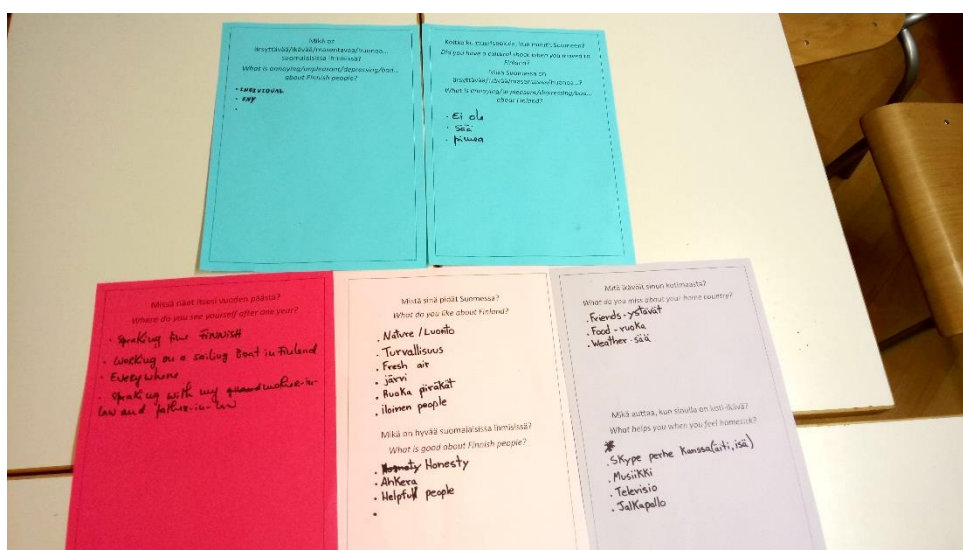 Mikä on
ärsyttävää/ikävää/masentavaa/kurjaa...
suomalaisissa ihmisissä?
What is annoying/unpleasant/depressing/
about Finnish people?
• INDIVIDUAL
• SHY
•
Did you have a cultural shock when you moved to
Finland?
Mikä Suomessa on
ärsyttävää/ikävää/masentavaa/
What is annoying/unpleasant/depressing/
about Finland?
• Ei ole
• sää
• pimeä
Missä näet itsesi vuoden päästä?
Where do you see yourself after one year?
• Speaking fine FINNISH
• Working on a sailing Boat in Finland
• Everywhere
• Speaking with my mother-in-
law and father-in-law
Mistä sinä pidät Suomessa?
What do you like about Finland?
• Nature / Luonto
• Turvallisuus
• Fresh air
• järvi
• Ruoka piräkät
• iloinen people
Mikä on hyvää suomalaisissa ihmisissä?
What is good about Finnish people?
• Honesty
• Ahkera
• Helpfull people
•
Mitä ikävöit sinun kotimaasta?
What do you miss about your home country?
• Friends - ystävät
• Food - ruoka
• Weather - sää
Mikä auttaa, kun sinulla on koti-ikävä?
What helps you when you feel homesick?
• Skype perhe kanssa (äiti, isä)
• Musiikki
• Televisio
• Jalkapallo